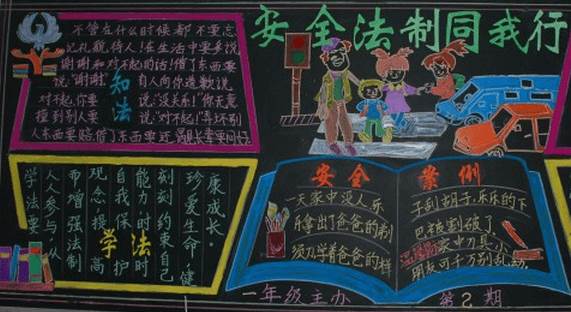 安全法制同我行
不管在什么时候都不要忘
记礼貌待人！在生活中要多说
谢谢和对不起的话！借了东西要
说“谢谢”
自人向你道歉说
对不起，你要
说：“没关系！”你无意
撞到别人要
说：“对不起！”弄坏别
人东西要赔，借了东西要还
知法
学法要
人人参与，从
而增强法制
观念提高
自我保护
能力时时
刻刻约束自己
珍爱生命，健
康成长。
学法
安全案例
一天家中没人，乐
乐拿出了爸爸的剃
须刀学着爸爸的样
子刮胡子，乐乐的下
巴被割破了。
温馨提示：家中刀具小
朋友可千万别乱动。
一年级主办
第2期